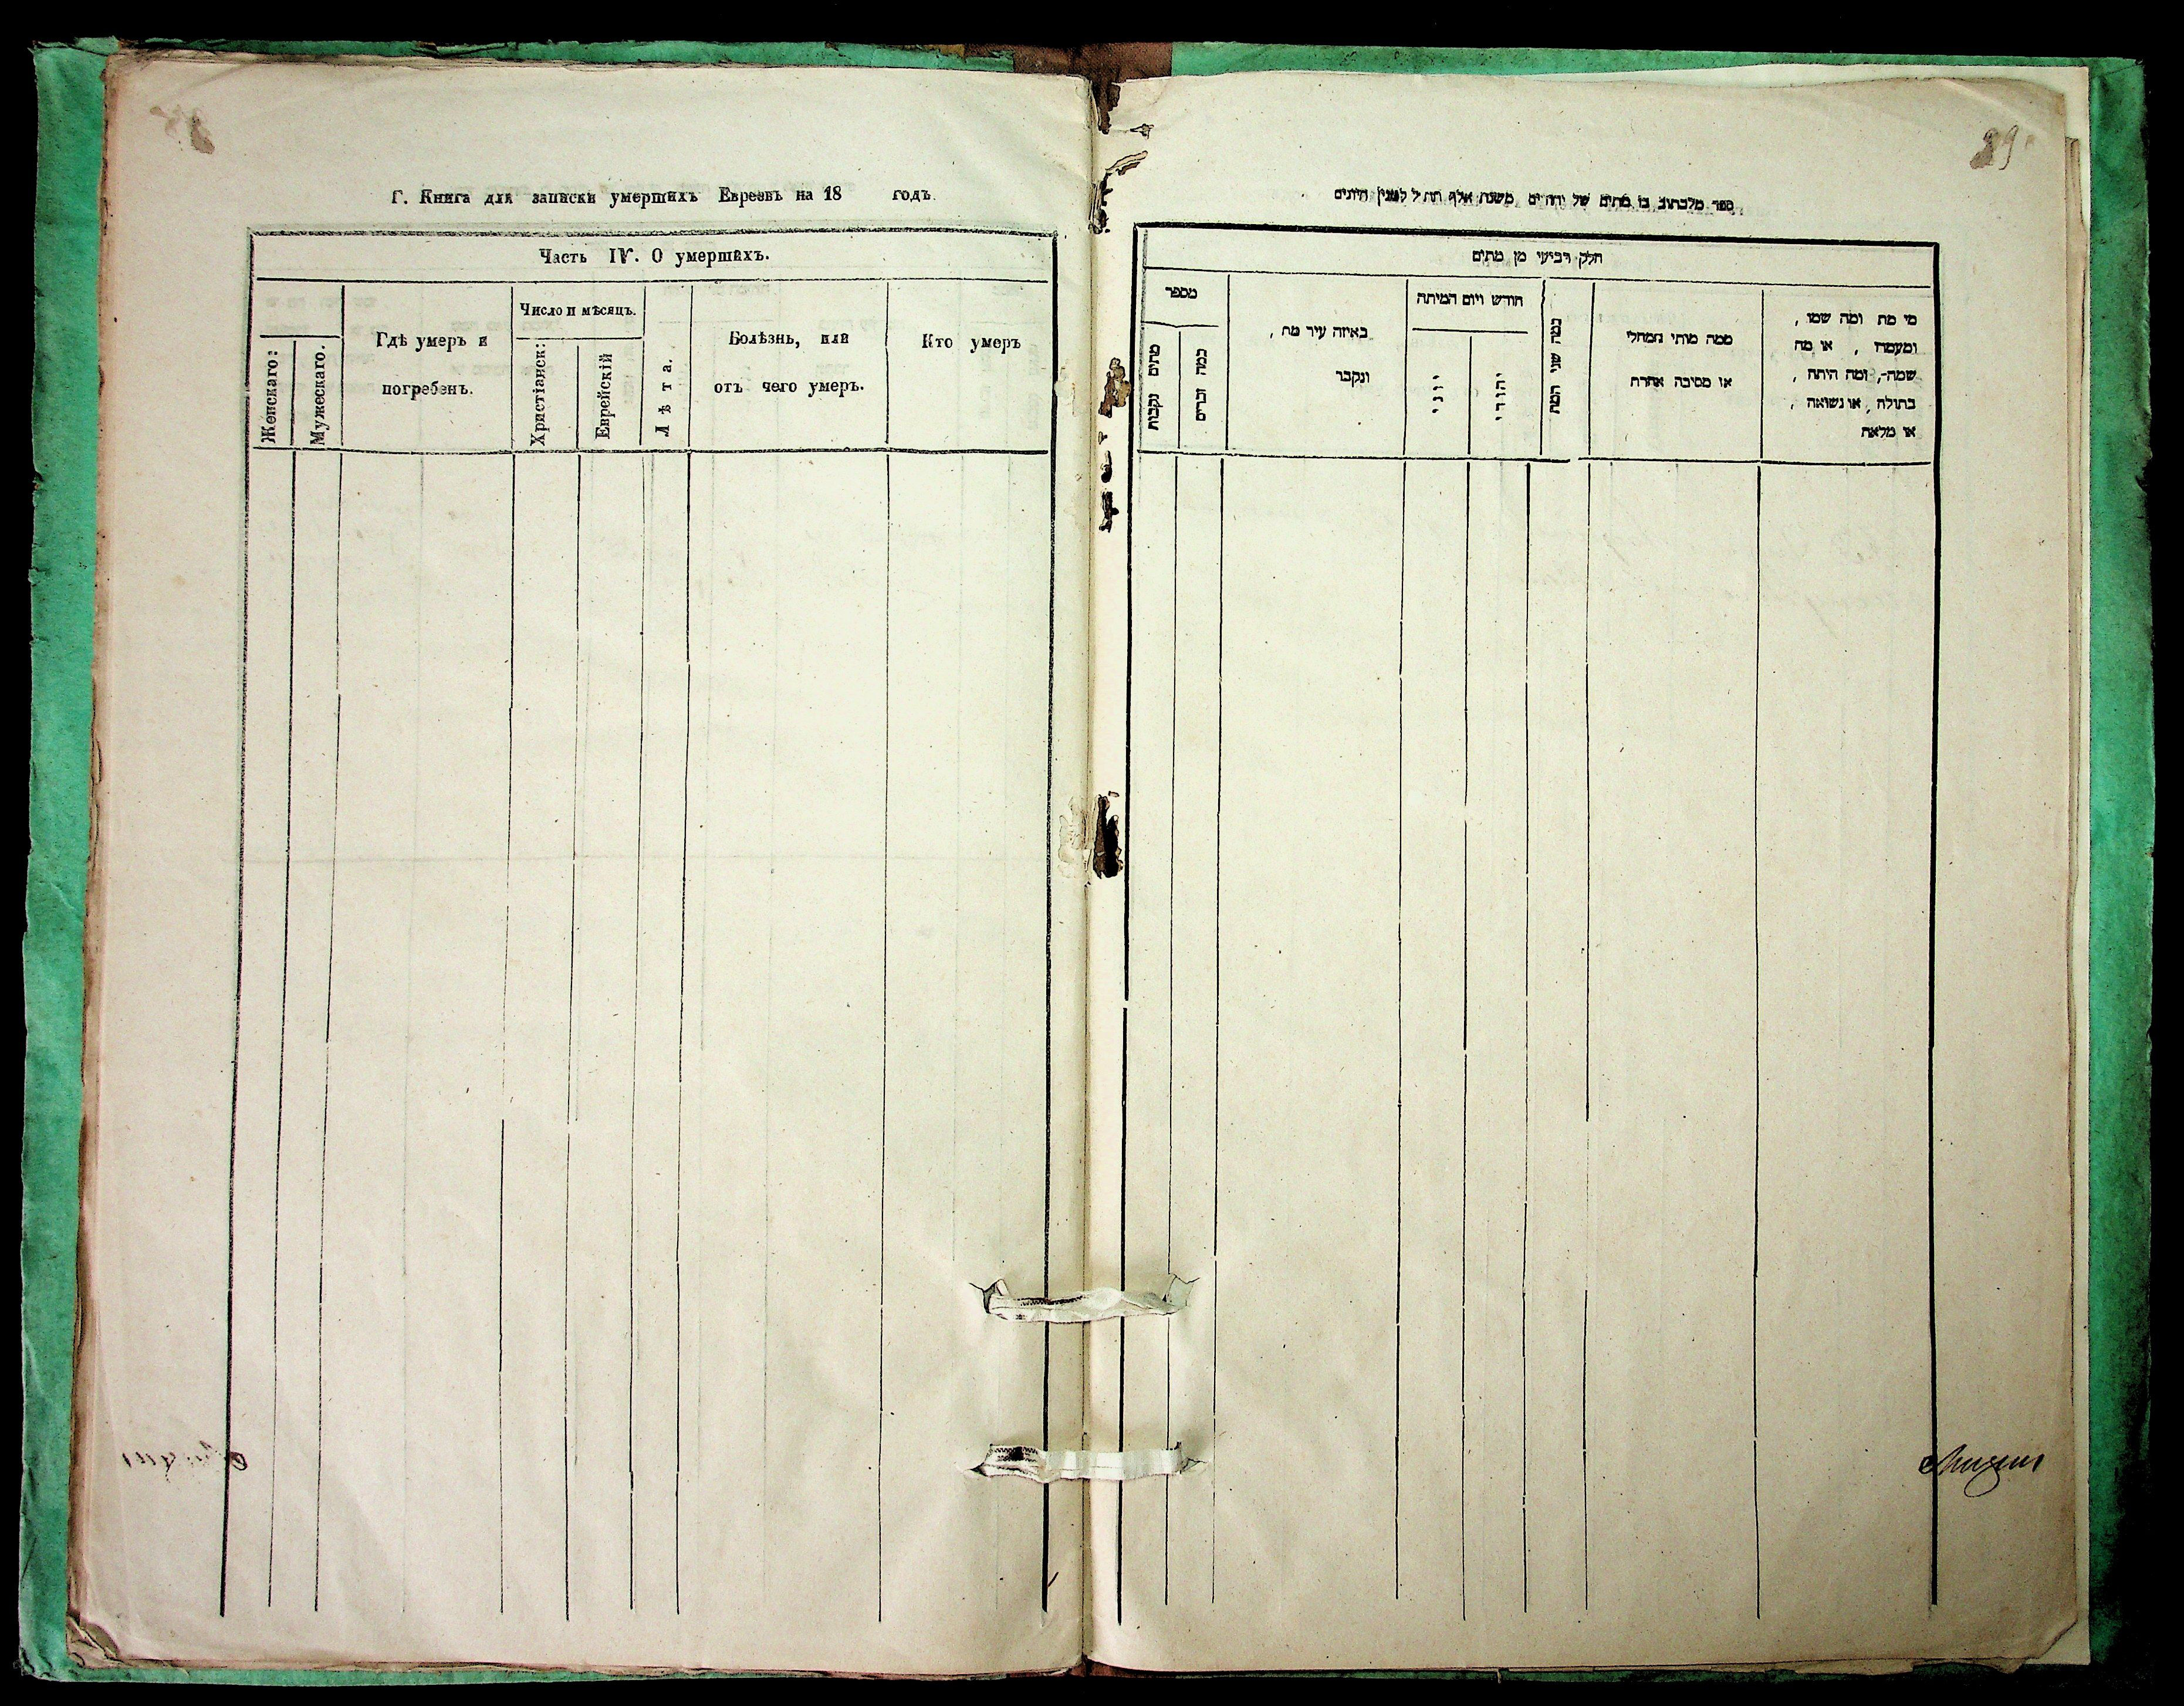 Г. Книга для записки умершихъ Евреевъ на 18 годъ
Часть IV. О умершихъ.
Женскаго:
Мужескаго.
Гдѣ умеръ и
погребенъ.
Число и мѣсяцъ.
Христіанск:
Еврейскій
Лѣта.
Болѣзнь, или
отъ чего умеръ.
Кто умеръ
89
ספר מלכתוב בו מתים של יהודים משנת אלף תת"ל למנין היונים
חלק רביעי מן מתים
מי מת ומה שמו,
ומעמדו, או מה
שמה, ומה היתה,
בתולה, או נשואה,
או מלאת
ממה מותי ממחלי
או מסיבה אחרת
כמה שני המת
חודש ויום המיתה
יהודי
יוני
באיזה עיר מת,
ונקבר
מספר
כמה זכרים
מתים נקבות